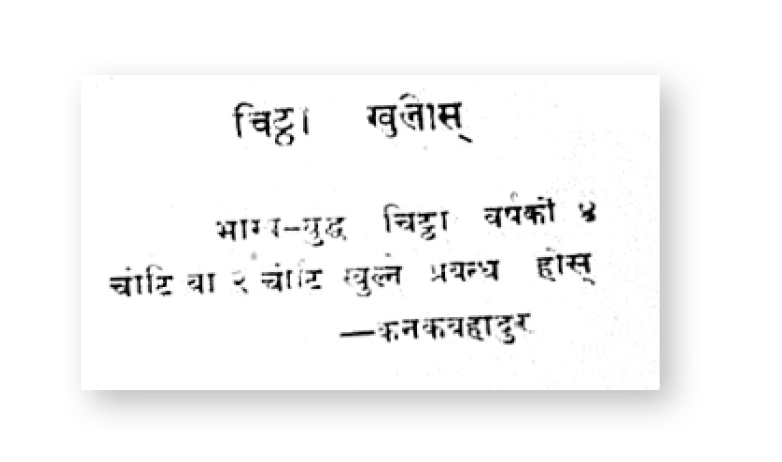 चिट्ठा खुलोस्
भाग्य-युद्ध चिट्ठा वर्षको ४
चोटि वा २ चोटि खुल्ने प्रबन्ध होस्
—कनकबहादुर